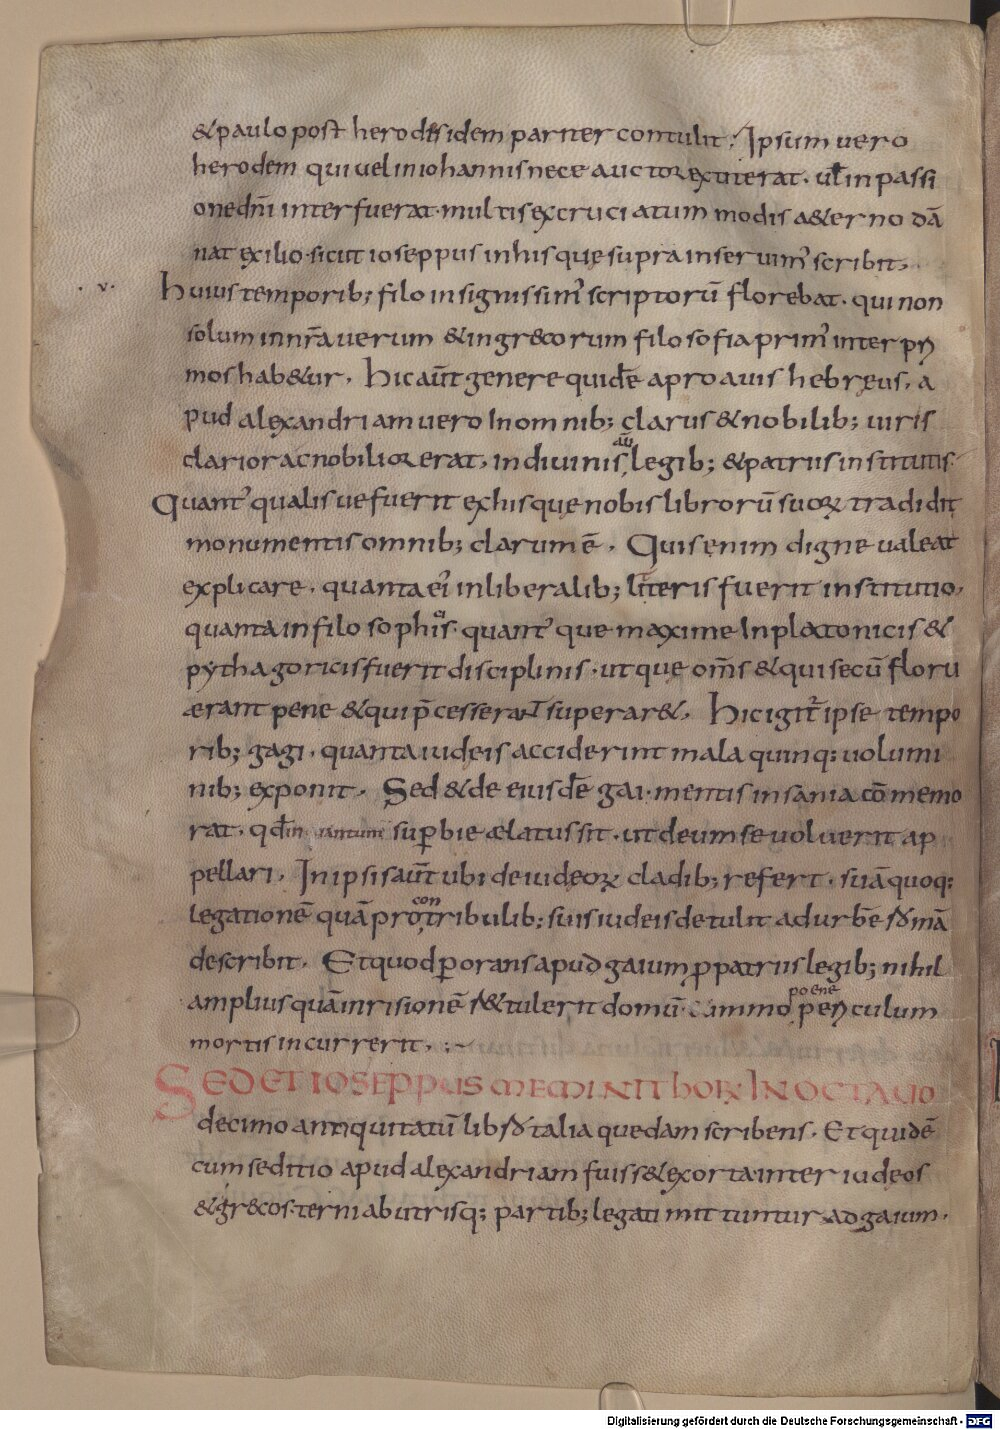 & paulo post herodi∫ idem pariter contulit. Ipsum vero
herodem qui uel in iohannis nece auctor extiterat. ul̄ in passi
one dn̄i interfuerat. multis excruciatum modis a&erno dā
nat exilio. sicut ioseppus in his que supra inseruim' scribit,
.v. huius temporib; filo insignissim' scriptorū florebat. qui non
solum in nr̄a uerum & in gr&corum filosofia prim' inter p̲ri
mos hab&ur. hic aūt genere quidē a proauis hebręus. a
pud alexandriam uero In omnib; clarus & nobilib; uiris
clarior ac nobilior erat, in diuinis aūt legib; & patriis institutis.
Quant' qualisue fuerit ex his que nobis librorū suorꝝ tradidit
monumentis omnib; clarum ē. Quis enim digne ualeat
explicare. quanta ei' in liberalib; litteris fuerit institutio,
quanta in filosophis. quant' que maxime In platonicis &
pythagoricis fuerit disciplinis. ut que om̄s & qui secū floru
ærant pene & qui p̄cesserant superar&. hic igit̄ ipse tempo
rib; gagi. quanta iudeis acciderint mala quinq; uolumi
nib; exponit. Sed & de eiusdē gai. mentis insania cōmemo
rat. qd̄ in tantum suꝑbie ælatus sit. ut deum se uoluerit ap
pellari. In ipsis aūt ubi de iudeorꝝ cladib; refert. suā quoq;
legationē quā pro contribulib; suis iudeis detulit ad urbē romā
describit. Et quod ꝑorans apud gaium ꝓ patriis legib; nihil
amplius quā inrisionē r&tulerit domū. Cum immo poene periculum
mortis incurrerit.
SED ET IOSEPPUS MEMINIT HORꝜ IN OCTAUO
decimo antiquitatū libro talia quedam scribens. Et quidē
cum seditio apud alexandriam fuiss& exorta inter iudeos
& gr&cos. terni ab utrisq; partib; legati mittuntur ad gaium.
Digitalisierung gefördert durch die Deutsche Forschungsgemeinschaft - DFG